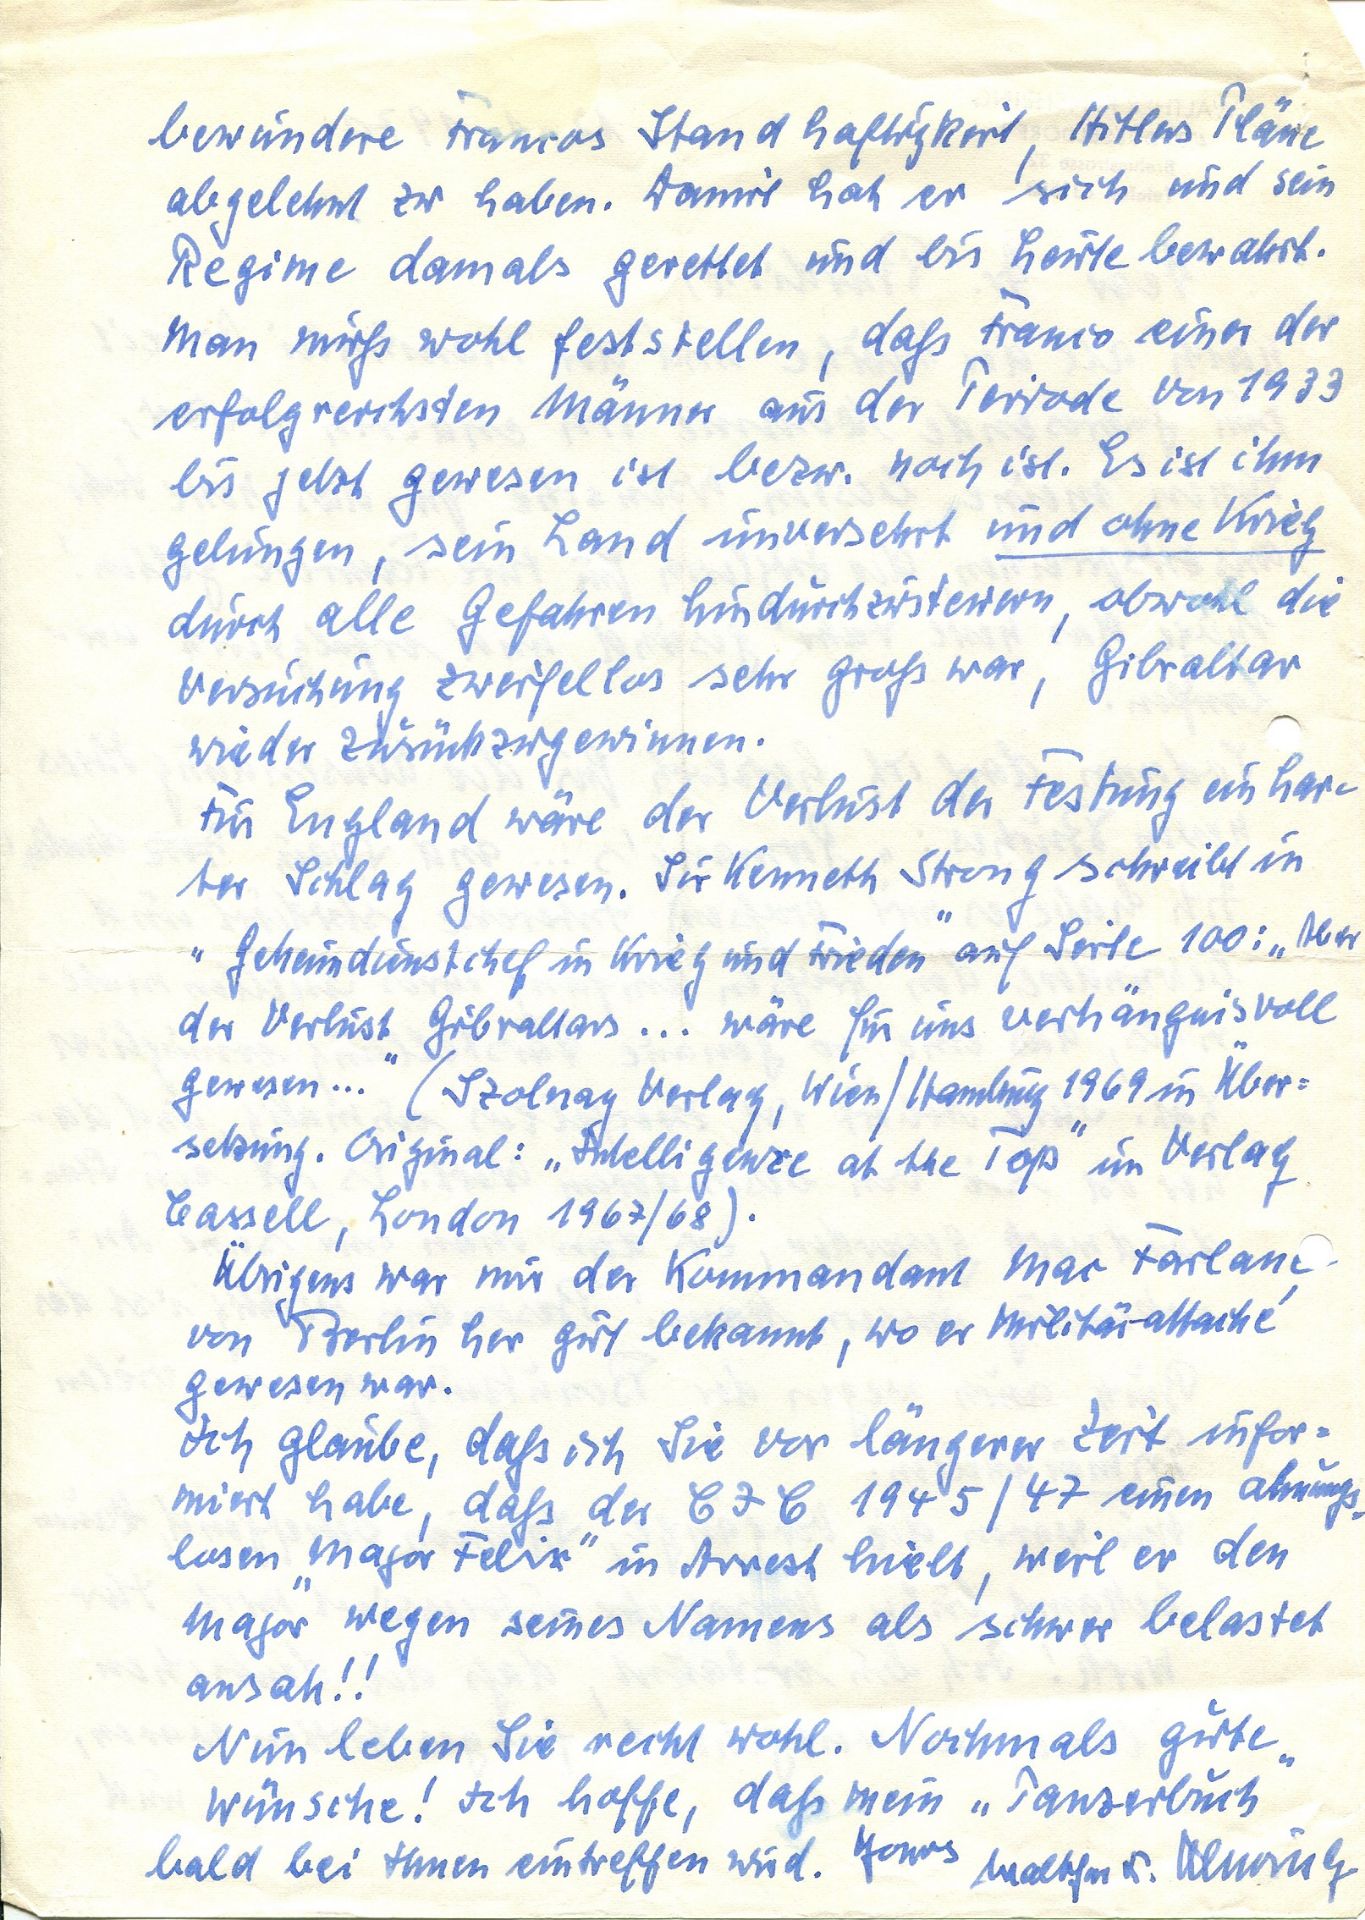 bewundere Francos Standhaftigkeit, Hitlers Pläne
abgelehnt zu haben. Damit hat er sich und sein
Regime damals gerettet und bis heute bewahrt.
Man muß wohl feststellen, daß Franco einer der
erfolgreichsten Männer aus der Periode von 1933
bis jetzt gewesen ist bezw. noch ist. Es ist ihm
gelungen, sein Land unversehrt und ohne Krieg
durch alle Gefahren hindurchzusteuern, obwohl die
Versuchung zweifellos sehr groß war, Gibraltar
wieder zurückzugewinnen.
Für England wäre der Verlust der Festung ein har-
ter Schlag gewesen. Sir Kenneth Strong schreibt in
"Geheimdienstchef in Krieg und Frieden" auf Seite 100: „Aber
der Verlust Gibraltars ... wäre für uns verhängnisvoll
gewesen ..." (Szolnay Verlag, Wien/Hamburg 1969 in Über=
setzung. Original: „Intelligence at the Top" im Verlag
Cassell, London 1967/68).
Übrigens war mir der Kommandant Mac Farlane
von Berlin her gut bekannt, wo er Militärattaché
gewesen war.
Ich glaube, daß ich Sie vor längerer Zeit infor=
miert habe, daß der CIC 1945/47 einen ahnungs-
losen „Major Felix" in Arrest hielt, weil er den
Major wegen seines Namens als schwer belastet
ansah!!
Nun leben Sie recht wohl. Nochmals gute
Wünsche! Ich hoffe, daß mein „Panzerbuch"
bald bei Ihnen eintreffen wird. Yours Walther K. Nehring